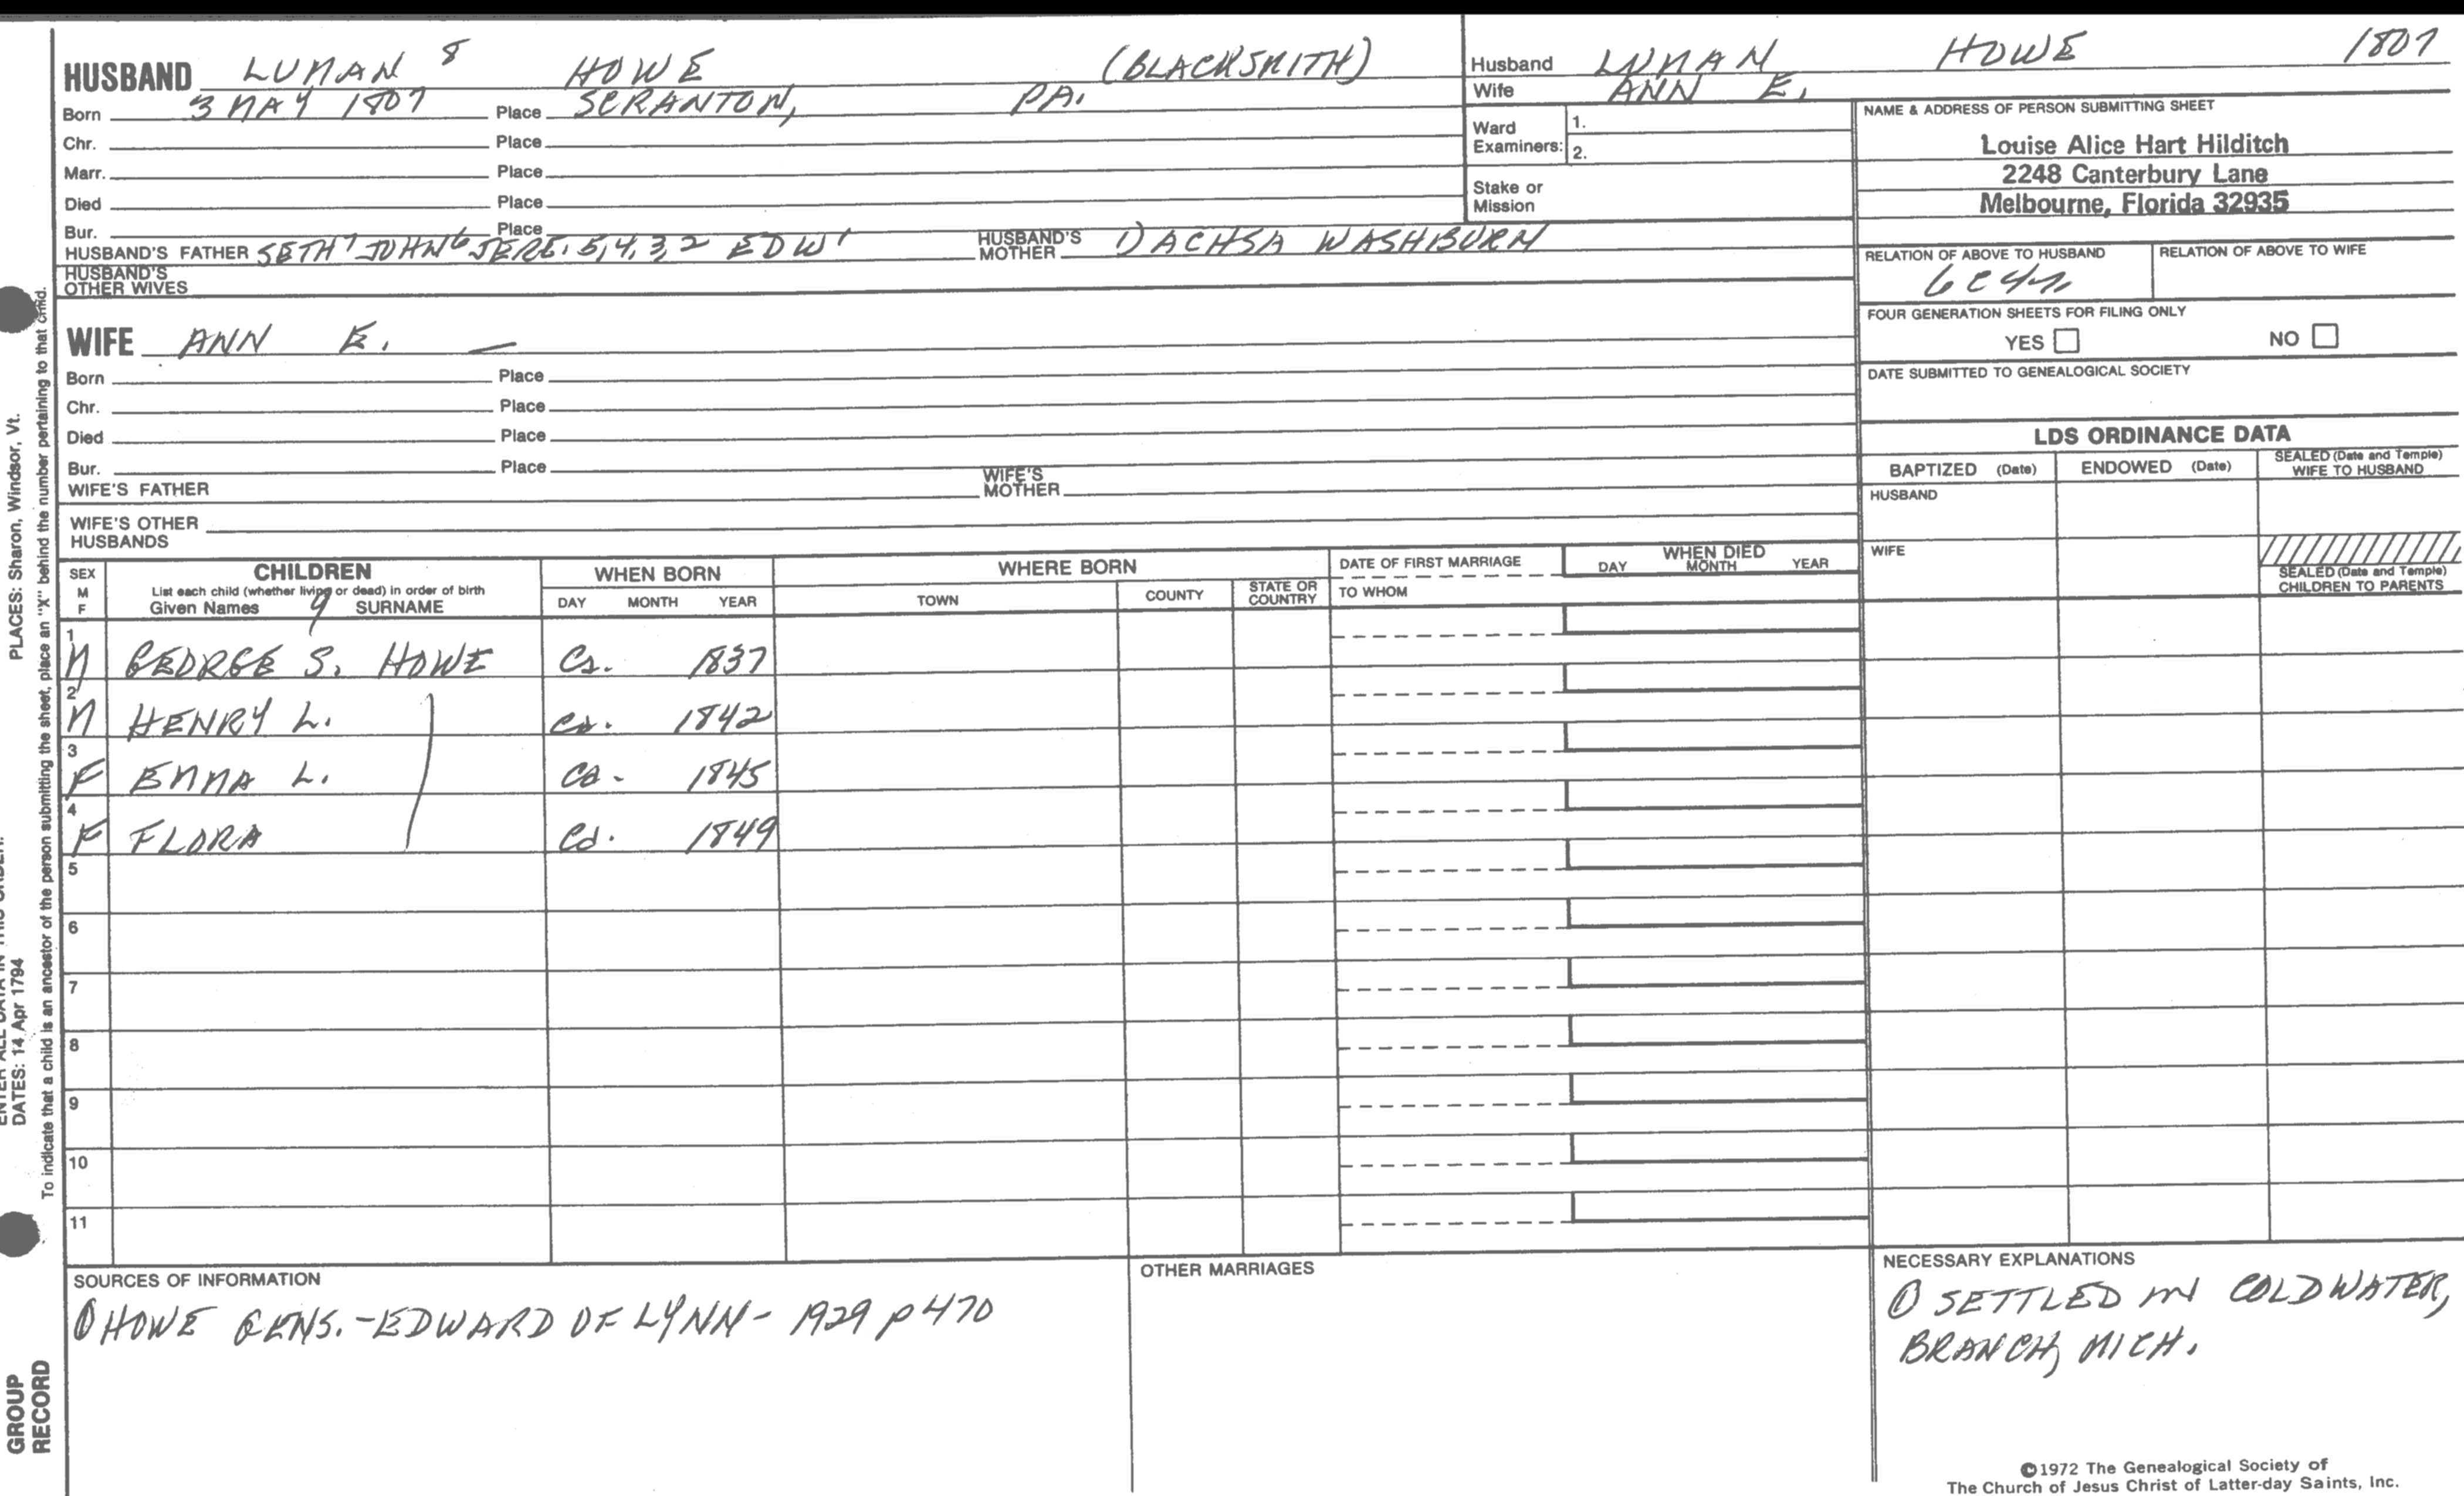 HUSBAND LUMAN 8 HOWE (BLACKSMITH)
Born 3 MAY 1807 Place SCRANTON, PA.
Chr. Place
Marr. Place
Died Place
Bur. Place
HUSBAND'S FATHER SETH 7 JOHN 6 JERE. 5,4,3,2 EDW 1 HUSBAND'S MOTHER 1) ACHSA WASHBURN
HUSBAND'S OTHER WIVES
WIFE ANN E. —
Born Place
Chr. Place
Died Place
Bur. Place
WIFE'S FATHER WIFE'S MOTHER
WIFE'S OTHER HUSBANDS
Husband LUMAN HOWE 1807
Wife ANN E.
Ward Examiners: 1.
2.
Stake or Mission
NAME & ADDRESS OF PERSON SUBMITTING SHEET
Louise Alice Hart Hilditch
2248 Canterbury Lane
Melbourne, Florida 32935
RELATION OF ABOVE TO HUSBAND RELATION OF ABOVE TO WIFE
FOUR GENERATION SHEETS FOR FILING ONLY
YES NO
DATE SUBMITTED TO GENEALOGICAL SOCIETY
LDS ORDINANCE DATA
BAPTIZED (Date) ENDOWED (Date) SEALED (Date and Temple) WIFE TO HUSBAND
HUSBAND
WIFE
SEALED (Date and Temple) CHILDREN TO PARENTS
SEX M F
CHILDREN
List each child (whether living or dead) in order of birth
Given Names 9 SURNAME
WHEN BORN
DAY MONTH YEAR
WHERE BORN
TOWN COUNTY STATE OR COUNTRY
DATE OF FIRST MARRIAGE
TO WHOM
WHEN DIED
DAY MONTH YEAR
1 M GEORGE S. HOWE Ca. 1837
2 M HENRY L. Ca. 1842
3 F EMMA L. Ca. 1845
4 F FLORA Ca. 1849
5
6
7
8
9
10
11
SOURCES OF INFORMATION
① HOWE GENS.-EDWARD OF LYNN- 1929 p470
OTHER MARRIAGES
NECESSARY EXPLANATIONS
① SETTLED IN COLDWATER,
BRANCH, MICH.
©1972 The Genealogical Society of
The Church of Jesus Christ of Latter-day Saints, Inc.
PLACES: Sharon, Windsor, Vt.
DATES: 14 Apr 1794
To indicate that a child is an ancestor of the person submitting the sheet, place an "X" behind the number pertaining to that child.
GROUP
RECORD